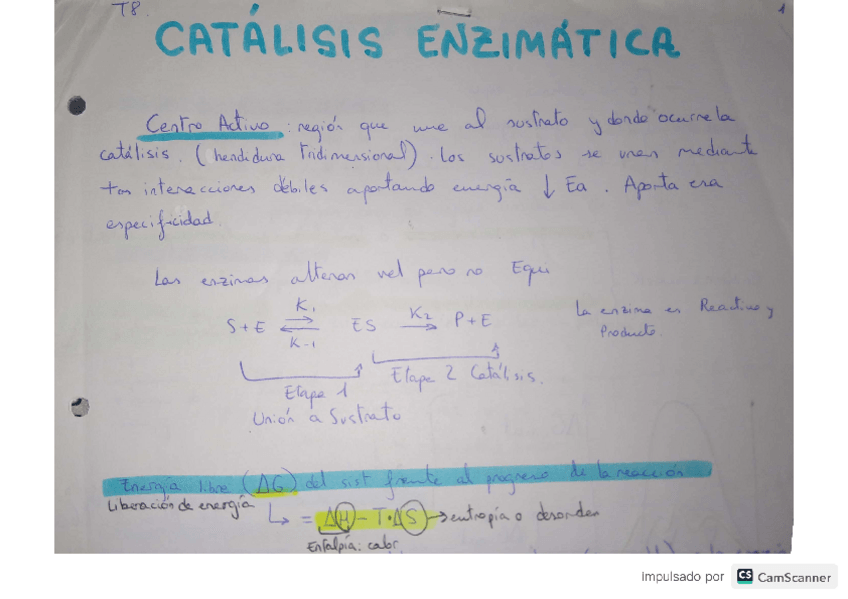 T8 1
CATÁLISIS ENZIMÁTICA
Centro Activo: región que une al sustrato y donde ocurre la
catálisis. (hendidura Tridimensional). Los sustratos se unen mediante
interacciones débiles aportando energía ↓ Ea. Aporta
especificidad.
Las enzimas alteran vel pero no Equi
S + E ⇌ ES → P + E
K1
K-1
K2
La enzima es Reactivo y
Producto.
Etapa 1
Unión a Sustrato
Etapa 2 Catálisis.
Energía libre (ΔG) del sist frente al progreso de la reacción
Liberación de energía
= ΔH - T·ΔS → entropía o desorden
Entalpía: calor
Impulsado por CS CamScanner